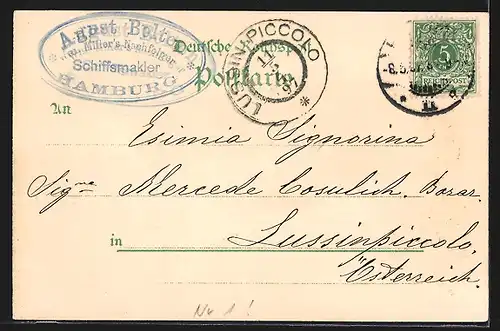 August Bolten
Wm. Miller's Nachfolger
Schiffsmakler
HAMBURG
Deutsche Reichspost
Postkarte
LUSSINPICCOLO
11
97
5
REICHSPOST
An
Esimia Signorina
Sig.na Mercede Cosulich, Bozar.
in Lussinpiccolo,
Österreich.
No 1!